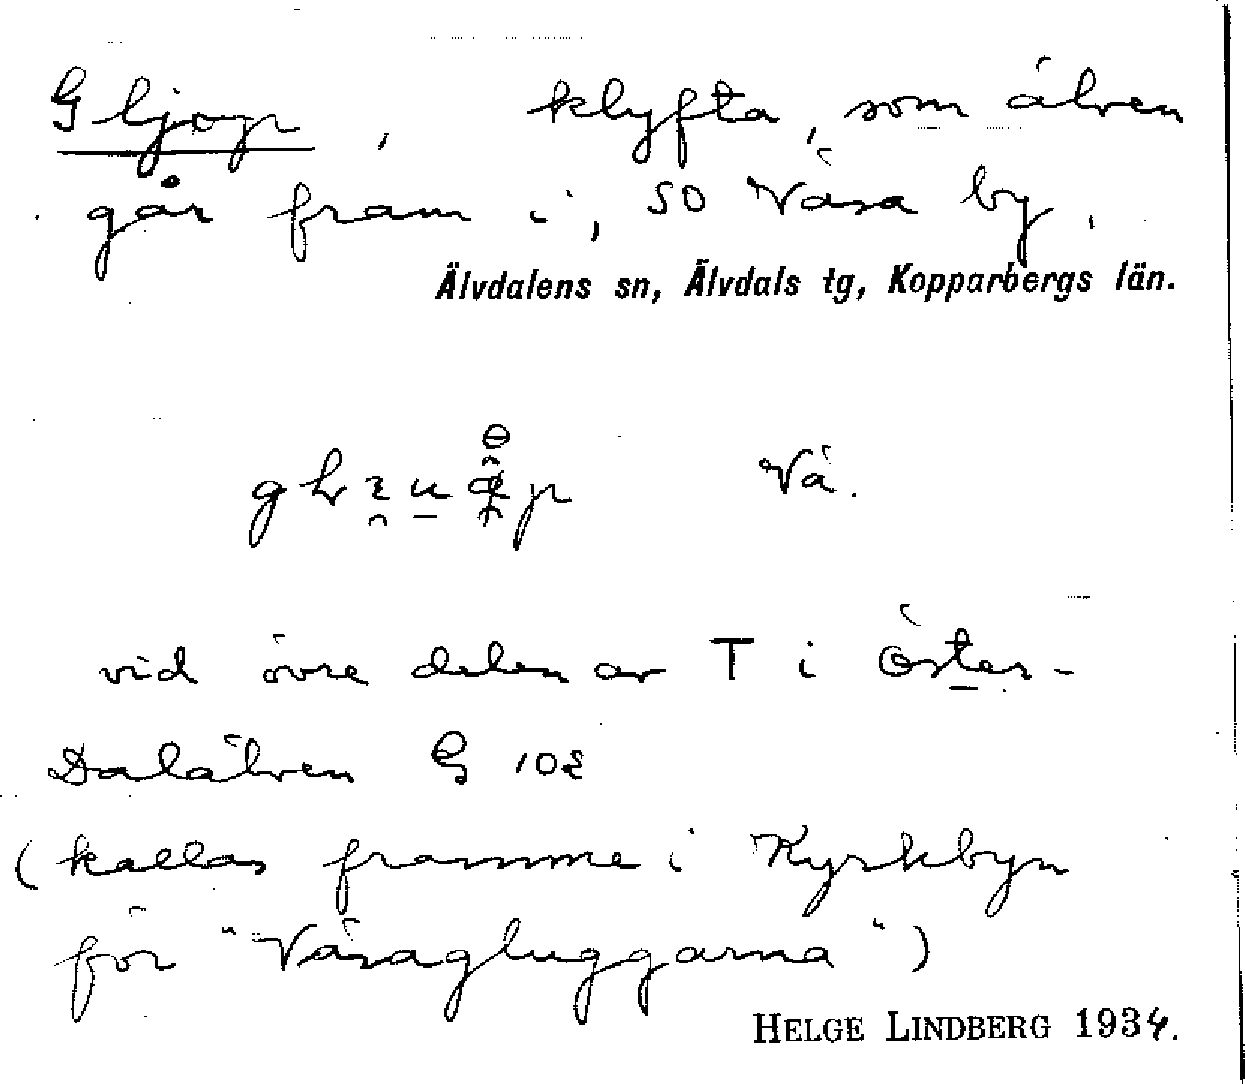 Gljop, klyfta, som älven
går fram i, SO Väsa by,
Älvdalens sn, Älvdals tg, Kopparbergs län.
Vä.
vid övre delen av T i Öster-
Dalälven G 102
(kallas framme i Kyrkbyn
för "Väsagluggarna")
HELGE LINDBERG 1934.